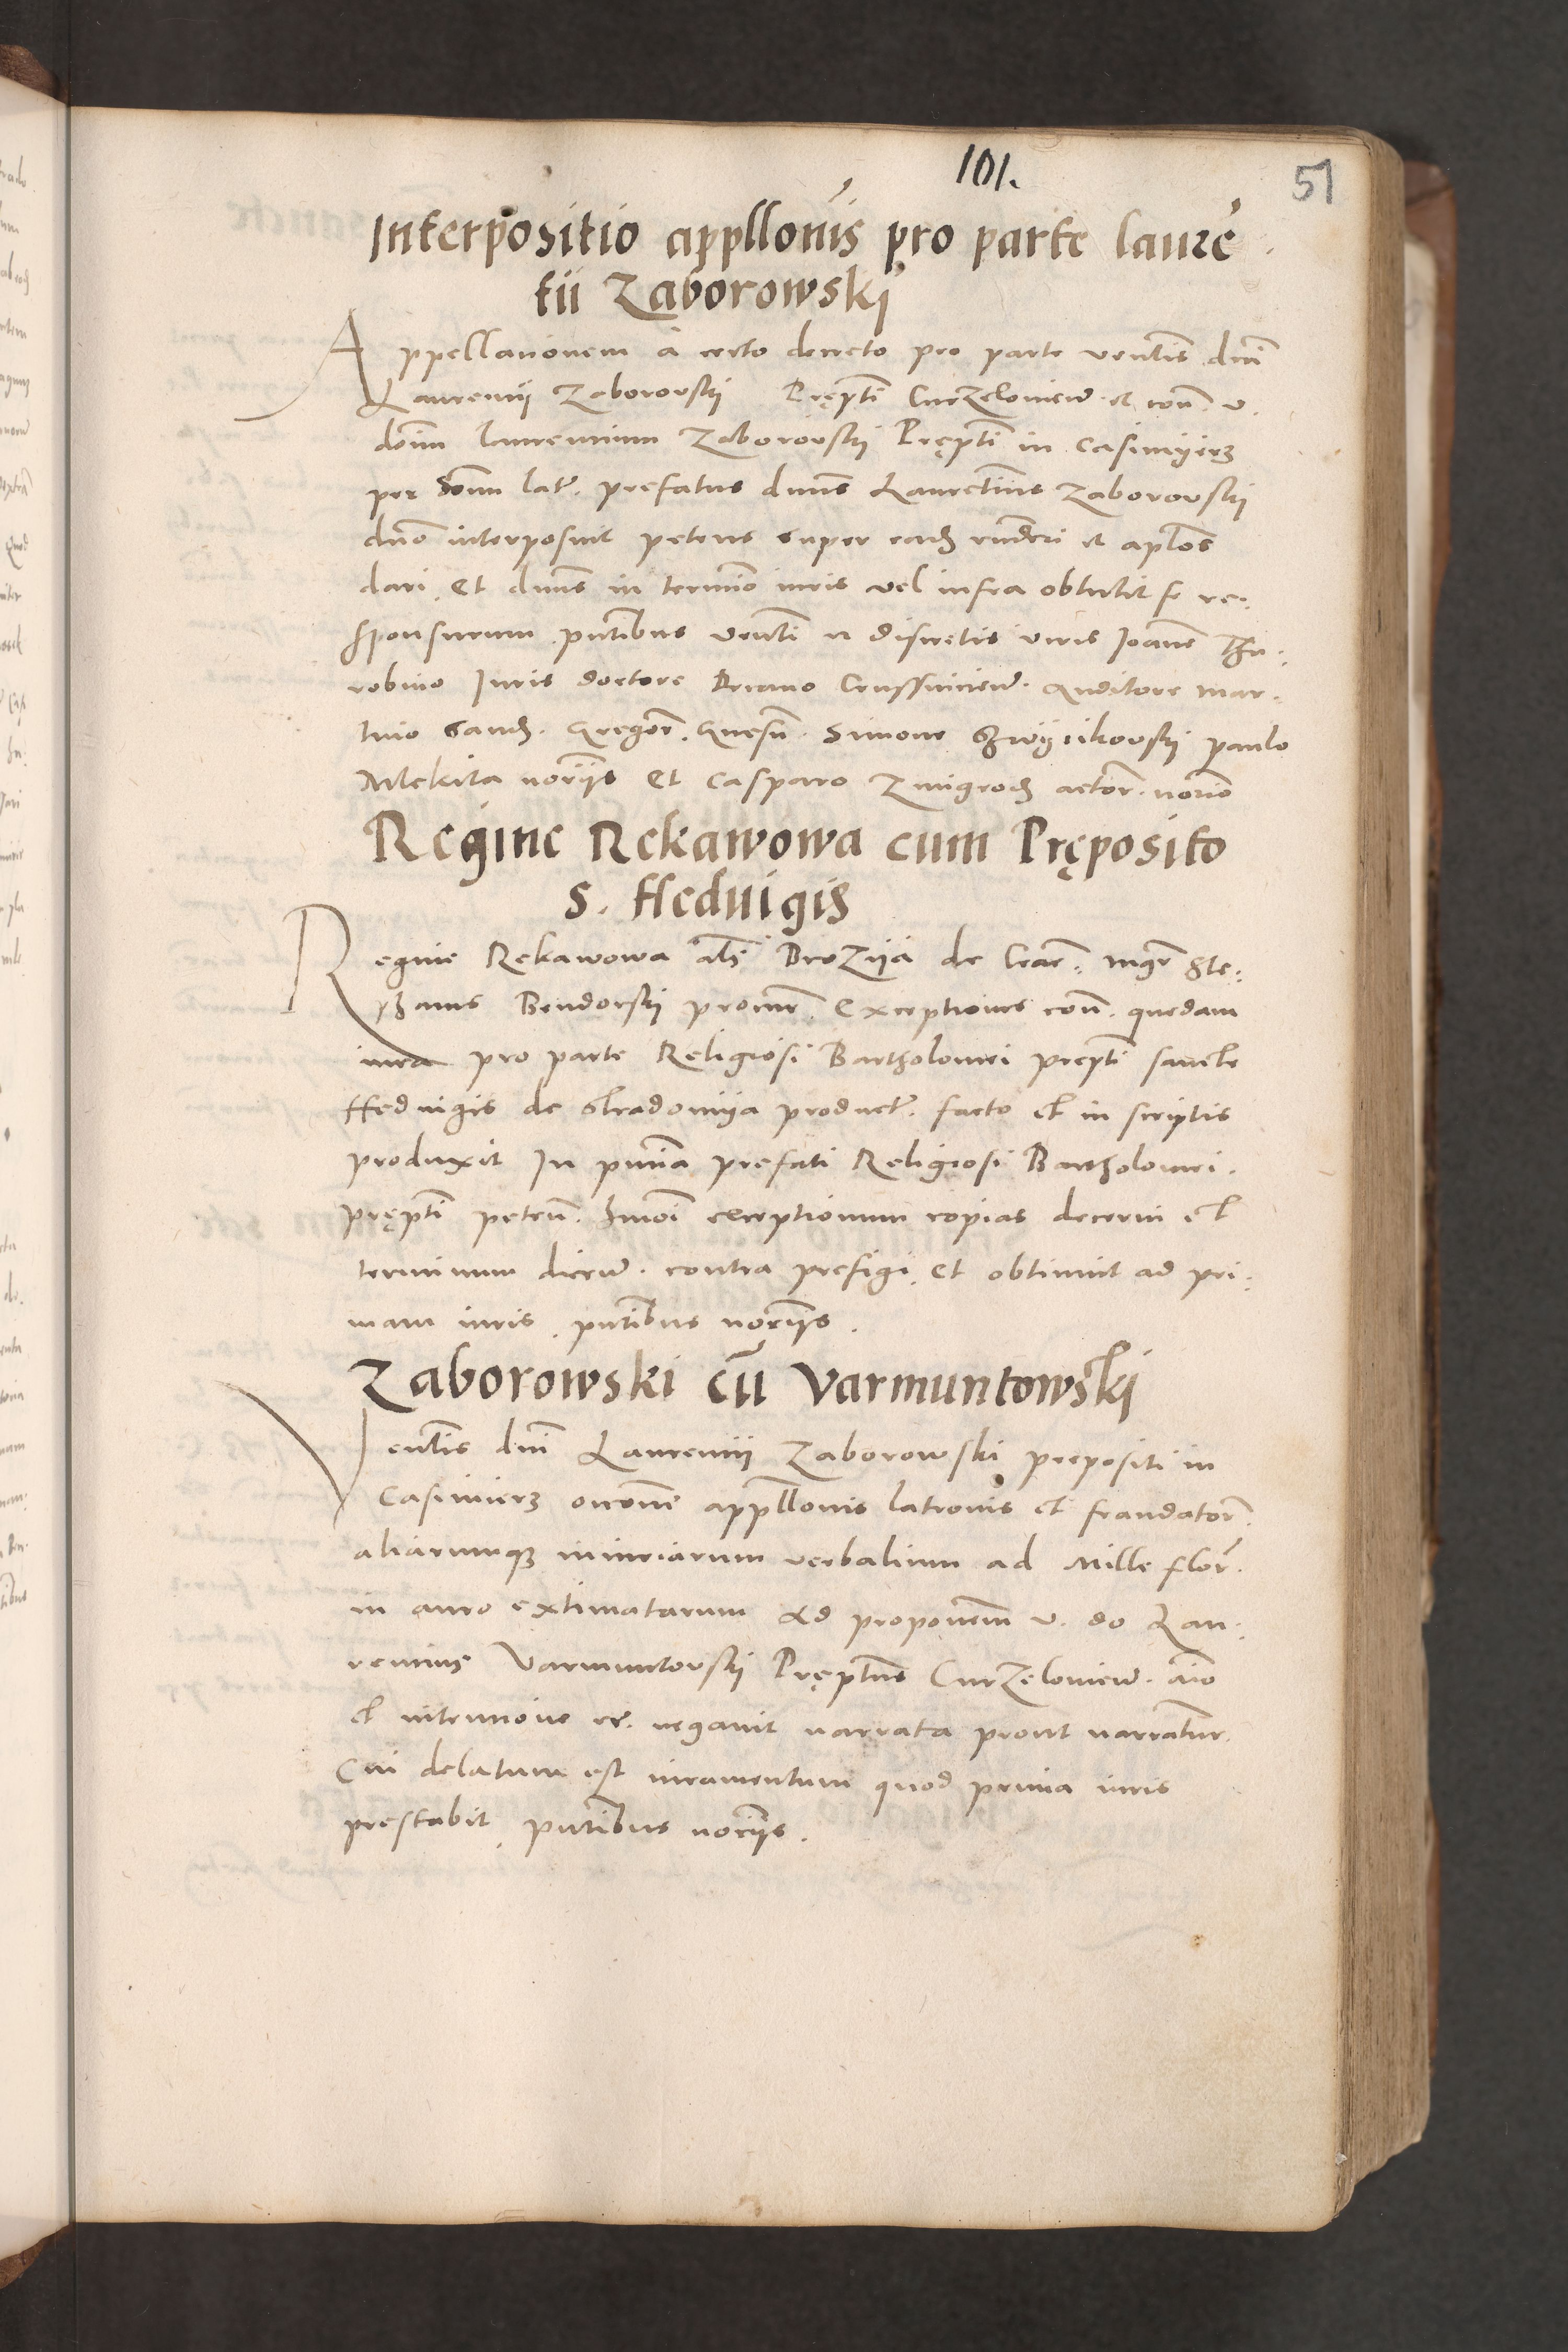 101.
51
Interpositio appllonis pro parte laurē
tii Zaborowski
Appellationem a certo decreto pro parte ventlis dni
Laurentii Zaborovskij Pręptti Curzeloviens. et con. v.
dnm Laurentium Zaborovskij Pręptti in Casimyerz
per dnum lato. prefatus dnus Laurentius Zaborovskij
dno interposuit petens super eadem rnderi et aplos
dari. Et dnus in termino iuris vel infra obtulit se re-
sponsurum. pntibus ventli et discretis viris Joanne Thu-
robino Juris doctore Auditore Mar-
tino Gregor. Simone Paulo
Mlekita noriis Et Casparo Zmigrod actor. notario
Regine Rekawowa cum Pręposito
S. Hedvigis
Regine Rekawowa als de Crac. mgr Ste-
phanus Bendorskij procur. Exceptiones con. quedam
iura pro parte Religiosi Bartholomei prepti sancte
Hedvigis de Stradomija product. facto et in scriptis
produxit In pntia prefati Religiosi Bartholomei.
pręptti peten. hmoi exceptionum copias decerni et
terminum dicend. contra prefigi. et obtinuit ad pri-
mam iuris. pntibus noriis.
Zaborowski cū Varmuntowski
Ventlis dni Laurentii Zaborowski prepositi in
Casimierz appllonis latronis et fraudator.
aliarumque iniuriarum verbalium ad Mille flor.
in auro extimatarum Ad proponem v. do Lau-
rentius Varmuntovskij Pręptus Curzeloviens. aio
et intentione etc. negavit narrata prout narrantur.
Cui delatum est iuramentum quod prima iuris
prestabit. pntibus noriis.